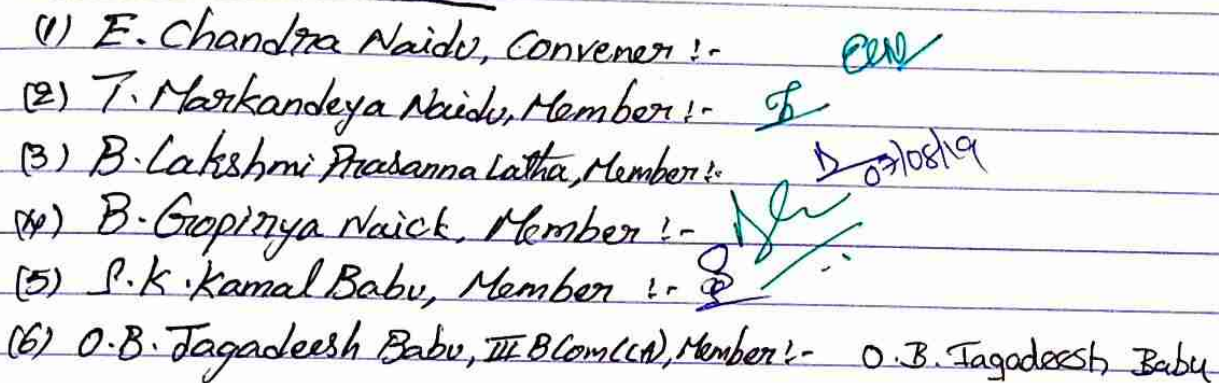 (1) E. Chandra Naidu, Convener :-
(2) T. Markandeya Naidu, Member :-
(3) B. Lakshmi Prasanna Latha, Member :- 07/08/19
(4) B. Gopinya Naick, Member :-
(5) S.K. Kamal Babu, Member :-
(6) O.B. Jagadeesh Babu, III B Com (CA), Member :- O.B. Jagadeesh Babu